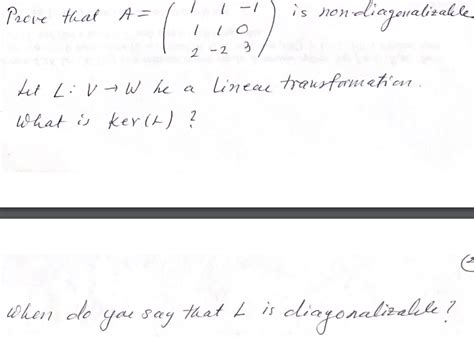 Prove that A = ( 1 1 -1
1 1 0
2 -2 3 ) is non-diagonalizable
Let L: V → W be a linear transformation.
What is ker(L) ?
(2
When do you say that L is diagonalizable ?